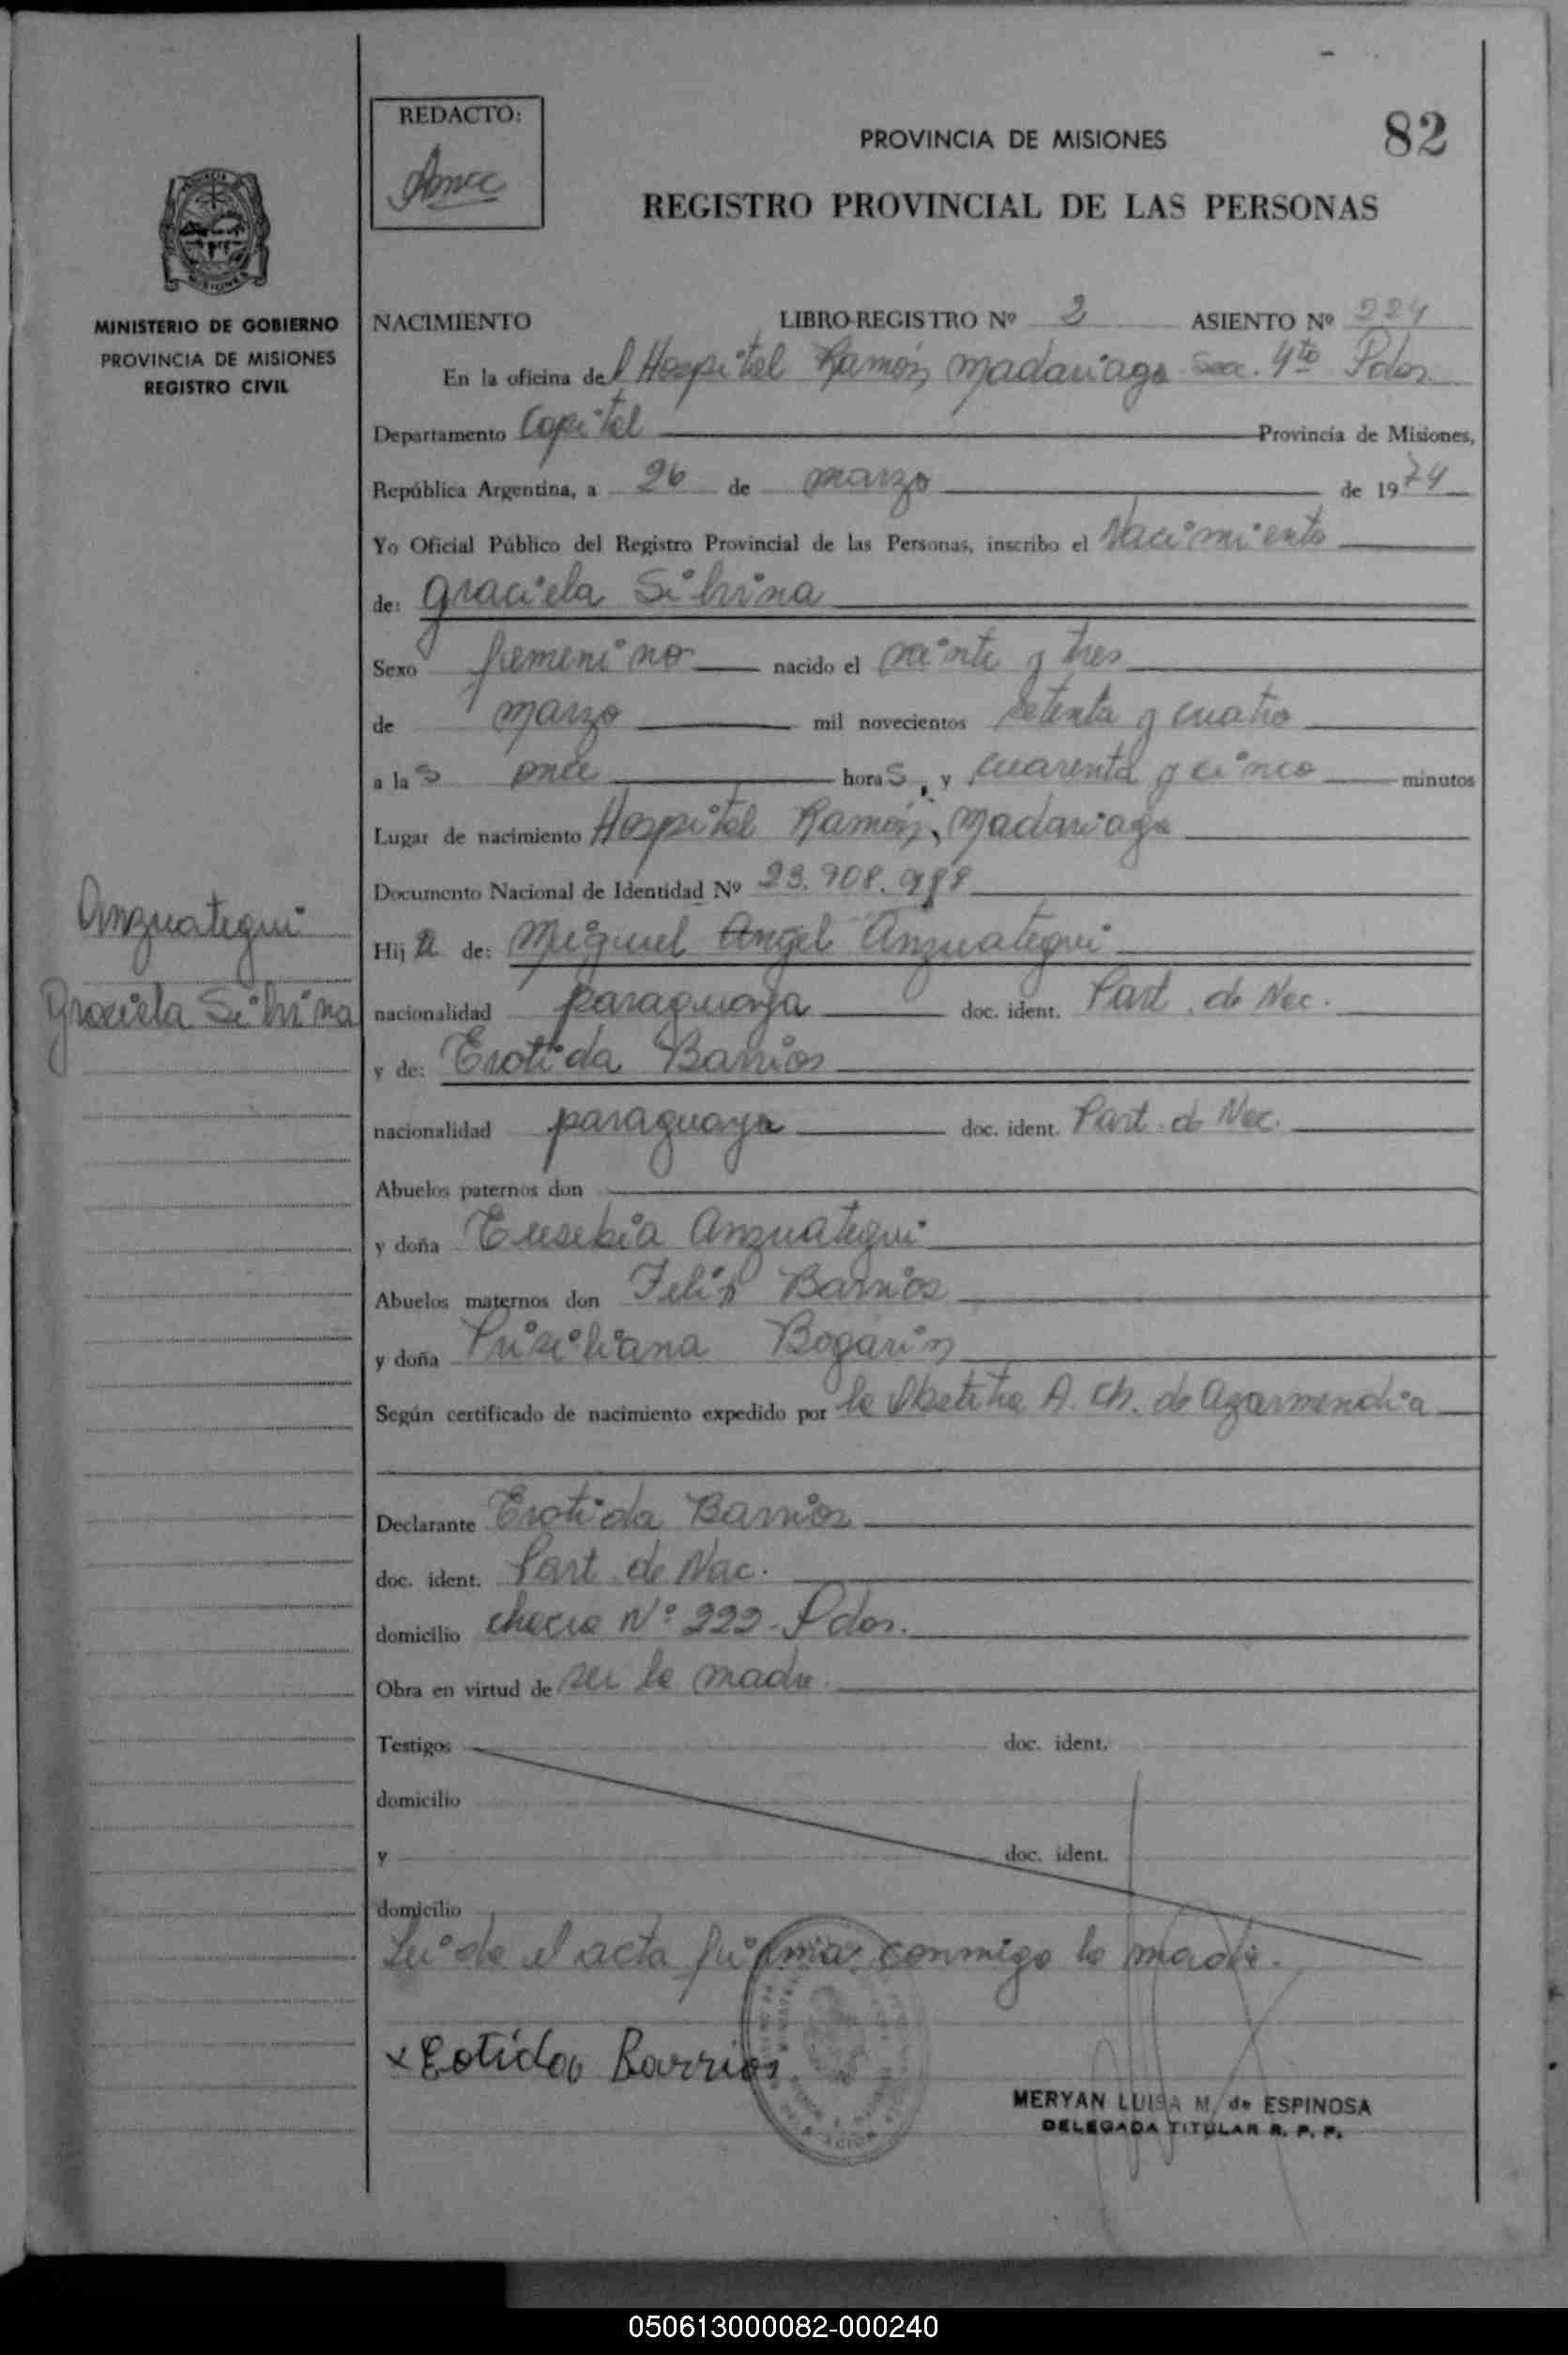 REDACTO:
PROVINCIA DE MISIONES
82
REGISTRO PROVINCIAL DE LAS PERSONAS
MINISTERIO DE GOBIERNO
PROVINCIA DE MISIONES
REGISTRO CIVIL
NACIMIENTO LIBRO-REGISTRO Nº 2 ASIENTO Nº 224
En la oficina del Hospital Ramón Madariaga Sec. 4to Pdas.
Departamento Capital Provincia de Misiones,
República Argentina, a 26 de marzo de 1974
Yo Oficial Público del Registro Provincial de las Personas, inscribo el Nacimiento
de: Graciela Silvina
Sexo femenino nacido el veinte y tres
de marzo mil novecientos setenta y cuatro
a las once horas, y cuarenta y cinco minutos
Lugar de nacimiento Hospital Ramón Madariaga
Documento Nacional de Identidad Nº 23.908.988
Anzuategui
Graciela Silvina
Hija de: Miguel Angel Anzuategui
nacionalidad paraguaya doc. ident. Part. de Nac.
y de: Erotida Barrios
nacionalidad paraguaya doc. ident. Part. de Nac.
Abuelos paternos don
y doña Eusebia Anzuategui
Abuelos maternos don Felix Barrios
y doña Prisiliana Bogarin
Según certificado de nacimiento expedido por la Obstetra A. Ch. de Azarmendia
Declarante Erotida Barrios
doc. ident. Part. de Nac.
domicilio chacra Nº 222 - Pdas.
Obra en virtud de ser la madre.
Testigos doc. ident.
domicilio
y doc. ident.
domicilio
Leida el acta firma conmigo la madre.
x Eotida Barrios
MERYAN LUISA M. de ESPINOSA
DELEGADA TITULAR R. P. P.
050613000082-000240